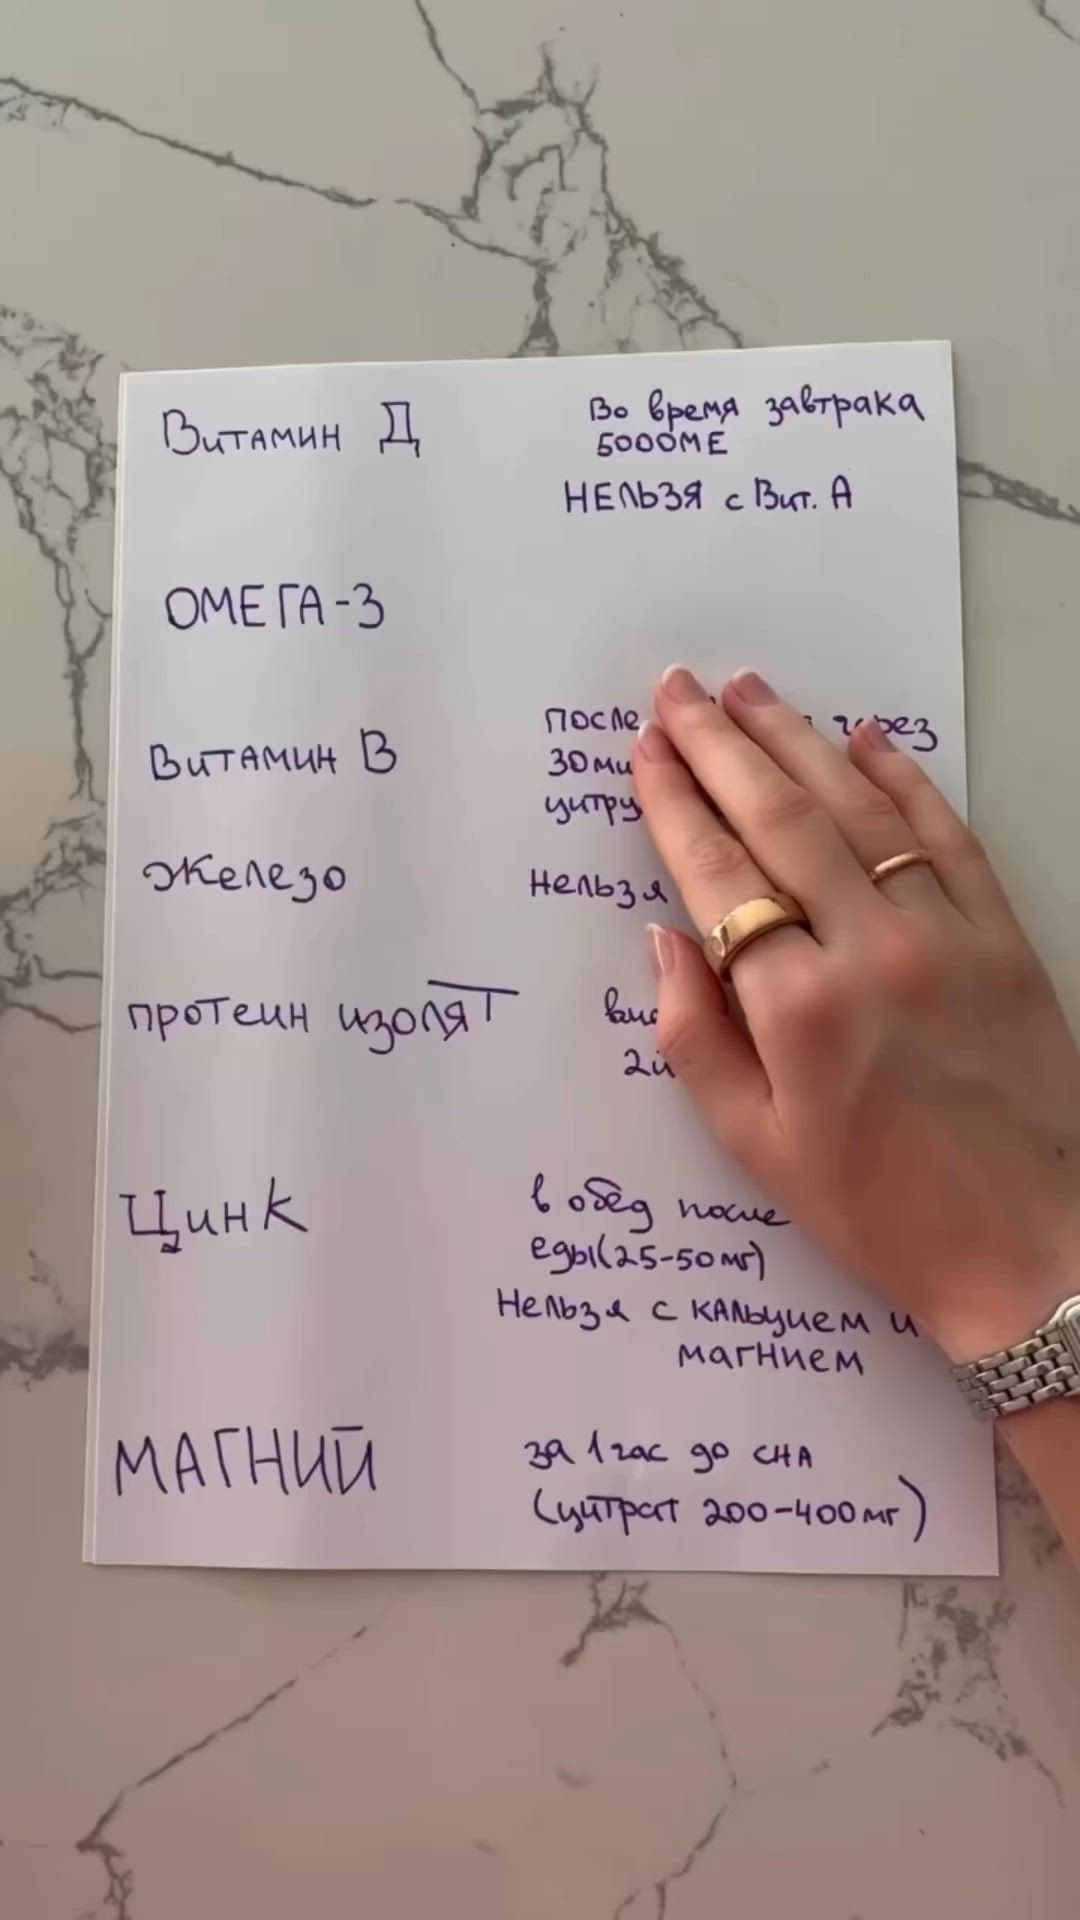 Витамин Д
Во время завтрака
5000МЕ
НЕЛЬЗЯ с Вит. А
ОМЕГА-3
Витамин В
после через
30
Железо
Нельзя
протеин изолят
Цинк
в обед после
еды(25-50мг)
Нельзя с кальцием и
магнием
МАГНИЙ
за 1 час до сна
(цитрат 200-400мг)